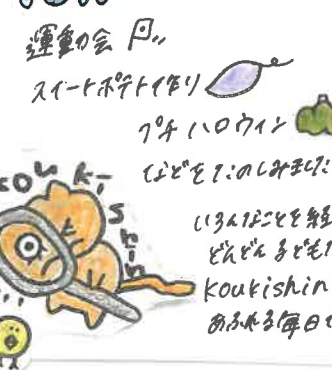 運動会
スイートポテト作り
プチハロウィン
などをたのしみました
koukishin
いろんなことを経
どんどん子ども
koukishin
あふれる毎日で